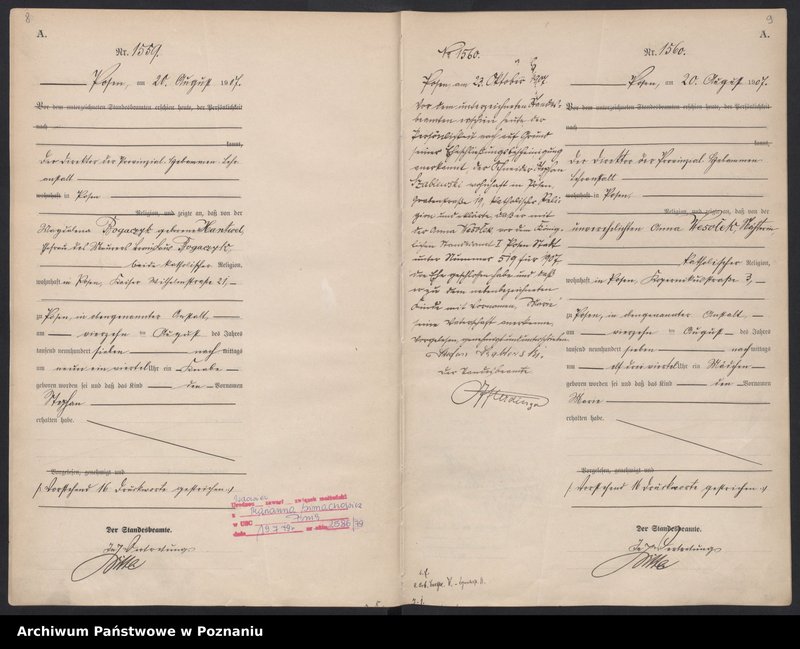 8
A.
Nr. 1559.
Posen, am 20. August 1907.
Vor dem unterzeichneten Standesbeamten erschien heute, der Persönlichkeit
nach
kannt,
der Direktor der Provinzial-Hebammen-Lehr-
anstalt
wohnhaft in Posen
Religion, und zeigte an, daß von der
Magdalena Rogaczyk geborene
Ehefrau des Maurers Rogaczyk
beide katholischer Religion,
wohnhaft in Posen, Kaiser Wilhelmstraße 21,
zu Posen, in dengenannter Anstalt,
am vierzehn ten August des Jahres
tausend neunhundert sieben nach mittags
um neun ein viertel Uhr ein Knabe
geboren worden sei und daß das Kind den Vornamen
Stephan
erhalten habe.
Vorgelesen, genehmigt und
/: Vorstehend 16 Druckworte gestrichen :/
Der Standesbeamte.
In Vertretung
związek małżeński
z Marianna
w USC
dnia 19.7.39r. nr aktu 2586/39
№ 1560.
Posen, am 23. Oktober 1907.
Vor dem unterzeichneten Standes-
beamten erschien heute der
Persönlichkeit nach auf Grund
seiner Eheschließungsbescheinigung
anerkannt der Schneider Stephan
wohnhaft in Posen,
Grabenstraße 19, katholischer Reli-
gion und erklärte daß er mit
der Anna Wesolek vor dem König-
lichen Standesamt I Posen Stadt
unter Nummer 519 für 1907
die Ehe geschlossen habe und daß
er zu dem nebenbezeichneten
Kinde mit Vornamen Marie
seine Vaterschaft anerkenne.
Vorgelesen, genehmigt und unterschrieben
Der Standesbeamte
9
A.
Nr. 1560.
Posen, am 20. August 1907.
Vor dem unterzeichneten Standesbeamten erschien heute, der Persönlichkeit
nach
kannt,
der Direktor der Provinzial-Hebammen-
Lehranstalt
wohnhaft in Posen,
Religion, und zeigte an, daß von der
unverehelichten Anna Wesolek, Nähterin
katholischer Religion,
wohnhaft in Posen 3,
zu Posen, in dengenannter Anstalt
am vierzehn ten August des Jahres
tausend neunhundert sieben nach mittags
um elf drei viertel Uhr ein Mädchen
geboren worden sei und daß das Kind den Vornamen
Marie
erhalten habe.
Vorgelesen, genehmigt und
/: Vorstehend 16 Druckworte gestrichen :/
Der Standesbeamte.
In Vertretung
Archiwum Państwowe w Poznaniu